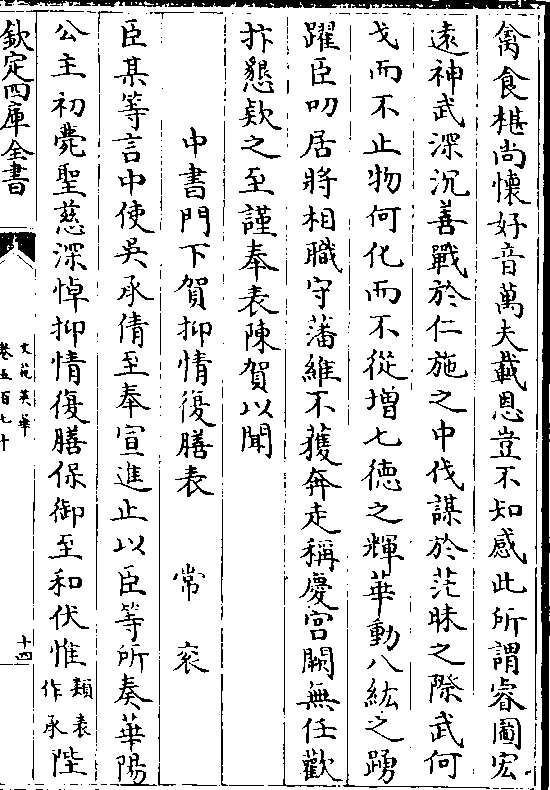 禽食椹尚懷好音萬夫載恩豈不知感此所謂睿圖宏
遠神武深沉善戰於仁施之中伐謀於茫昧之際武何
戈而不止物何化而不從增七徳之輝華動八紘之踴
躍臣叨居將相職守藩維不獲奔走稱慶宫闕無任歡
抃懇欵之至謹奉表陳賀以聞
中書門下賀抑情復膳表 常衮
臣某等言中使吳承倩至奉宣進止以臣等所奏華陽
公主初薨聖慈深悼抑情復膳保御至和伏惟類表作承陛
欽定四庫全書
文苑英華
卷五百七十
十四